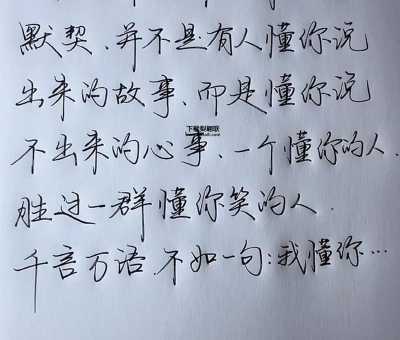 默契、并不是有人懂你说
出来的故事、而是懂你说
不出来的心事、一个懂你的人.
胜过一群懂你笑的人.
千言万语.不如一句:我懂你…